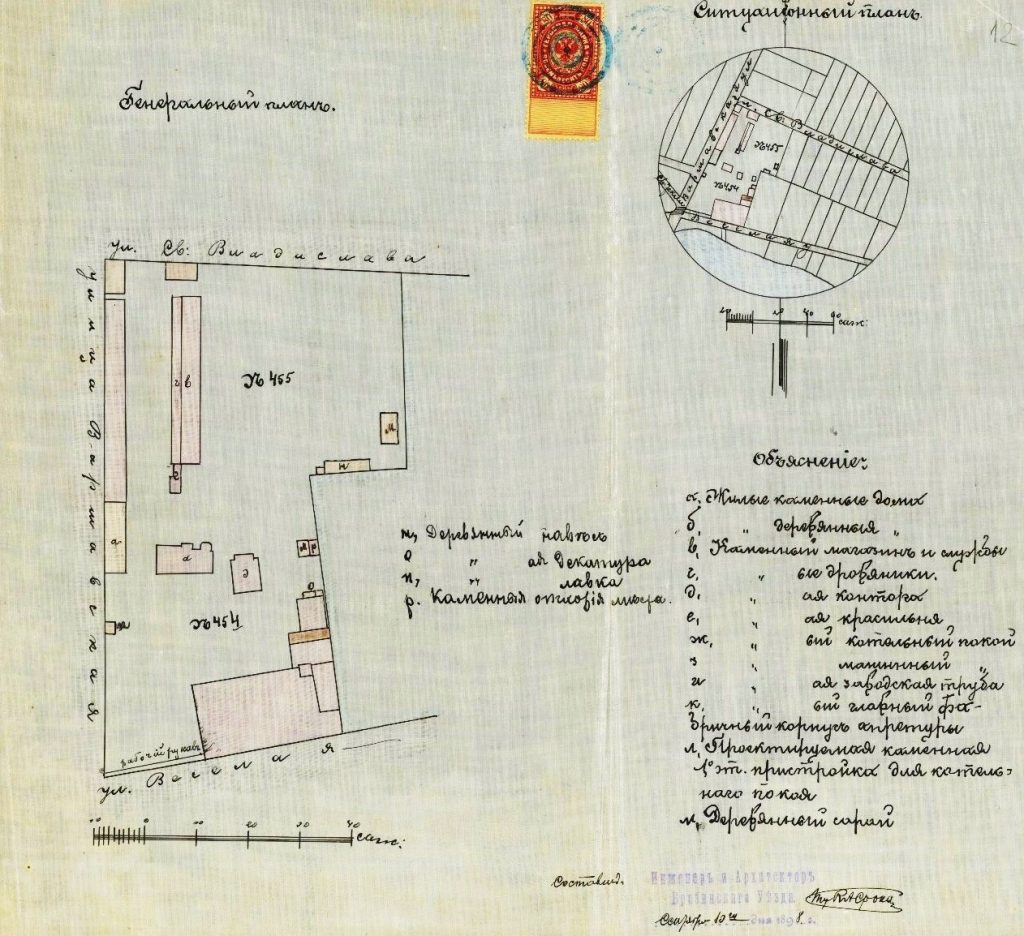 Ситуаціонный планъ.
12
Генеральный планъ.
Варшавская ул.
ул. Св. Владислава
№ 455
№ 454
Веселая ул.
20 0 20 40 60 саж:
ул. Св. Владислава
улица Варшавская
№ 455
г в
м
н
а
а
д
о
№ 454
рабочій рукавъ
ул. Веселая
10 0 10 20 30 40 саж:
н, Деревянный навѣсъ
о „ ая декатура
п, „ лавка
р. Каменныя
Объясненіе:
а, Жилые каменные дома
б, „ деревянныя „
в, Каменный магазинъ и службы
г, „ ые дровяники.
д, „ ая контора
е, „ ая красильня
ж, „ ый котельный покой
з „ машинный „
и „ ая заводская труба
к, „ ый главный фа-
бричный корпусъ апретуры
л, Проектируемая каменная
1 эт. пристройка для котель-
наго покоя
м, Деревянный сарай
Составилъ
Инженеръ и Архитекторъ
Уѣзда
10 дня 1898 г.